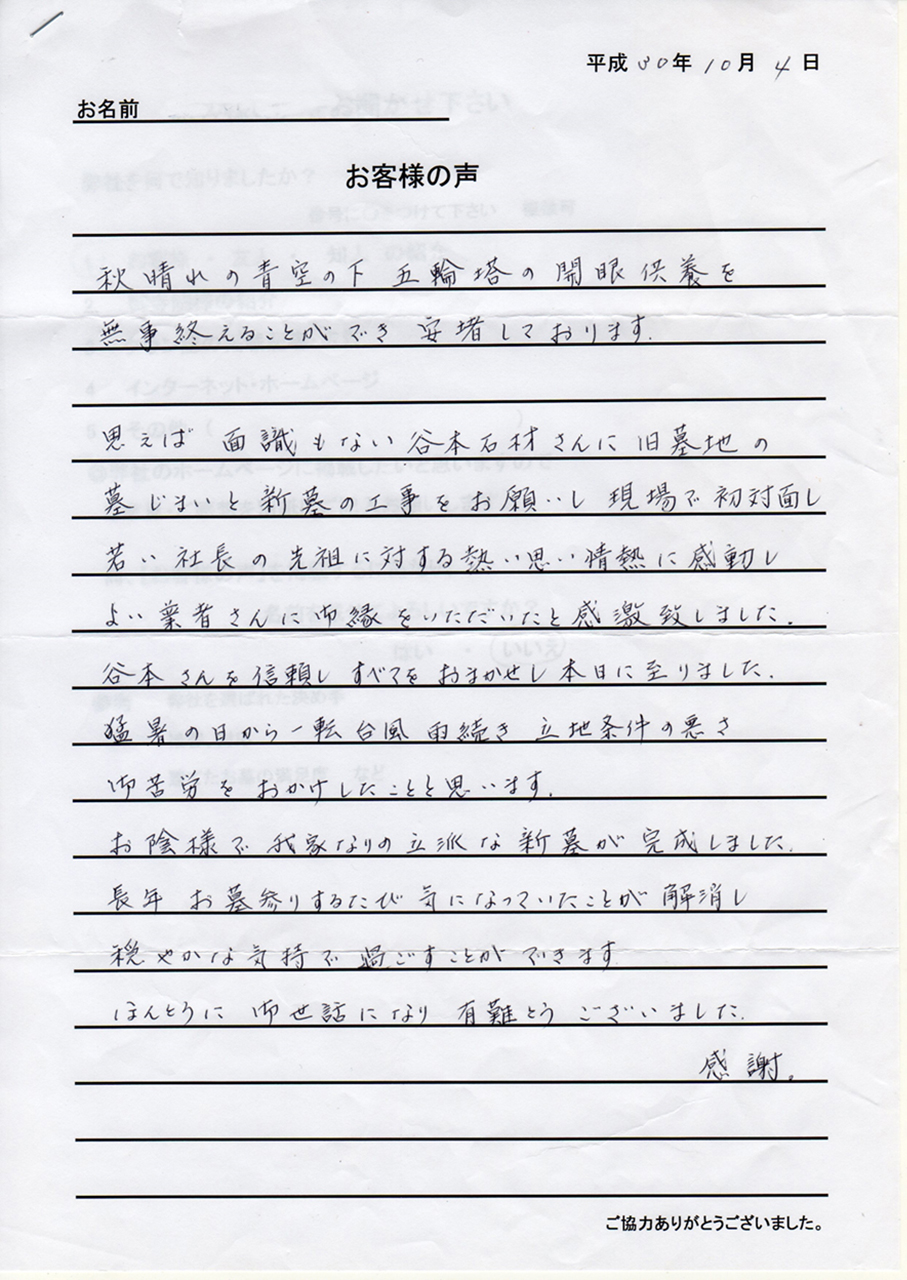 平成30年10月4日
お名前
お客様の声
秋晴れの青空の下 五輪塔の開眼供養を
無事終えることができ 安堵しております.
思えば 面識もない谷本石材さんに旧墓地の
墓じまいと新墓の工事をお願いし 現場で初対面し
若い社長の先祖に対する熱い思い情熱に感動し
よい業者さんに御縁をいただいたと感激致しました.
谷本さんを信頼し すべてをおまかせし本日に至りました.
猛暑の日から一転台風 雨続き 立地条件の悪さ
御苦労をおかけしたことと思います.
お陰様で我家なりの立派な新墓が完成しました.
長年 お墓参りするたび気になっていたことが解消し
穏やかな気持で過ごすことができます
ほんとうに御世話になり 有難とうございました.
感謝。
ご協力ありがとうございました。